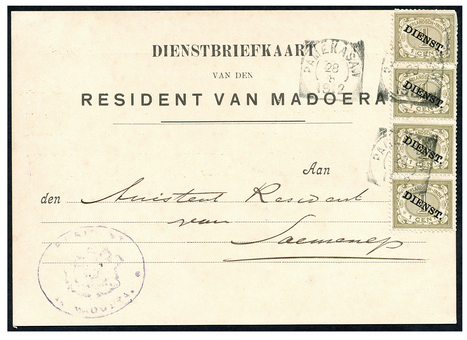 DIENSTBRIEFKAART
VAN DEN
RESIDENT VAN MADOERA
PAMEKASAN
28
5
Aan
den Assistent Resident
van
Soemenep
DIENST.
CENT
DIENST.
CENT
DIENST.
CENT
DIENST.
CENT
MADOERA.